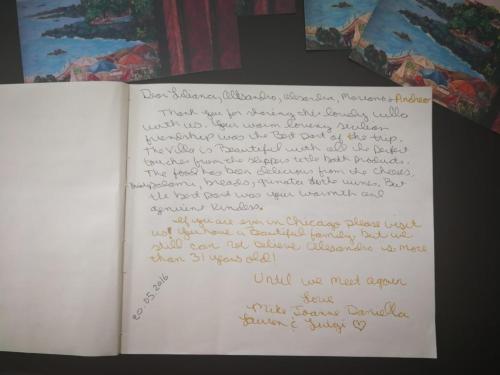 Dear Liliana, Alessandro, Alexandra, Marianna + Andrea
Thank you for sharing this lovely villa
with us. Your warm loving sicilian
friendship was the Best Part of the trip.
The Villa is Beautiful with all the perfect
touches from the slippers to the bath products.
The food has been delicious from the cheeses,
salami, breads, wines. But
the best part was your warmth and
genuine kindness.
If you are ever in Chicago please visit
us! You have a Beautiful family. But we
still can not believe Alessandro is more
than 31 years old!
Until we meet again
Love
Mike Joanne Daniella
Lauren & Luigi ♡
20.05.2016